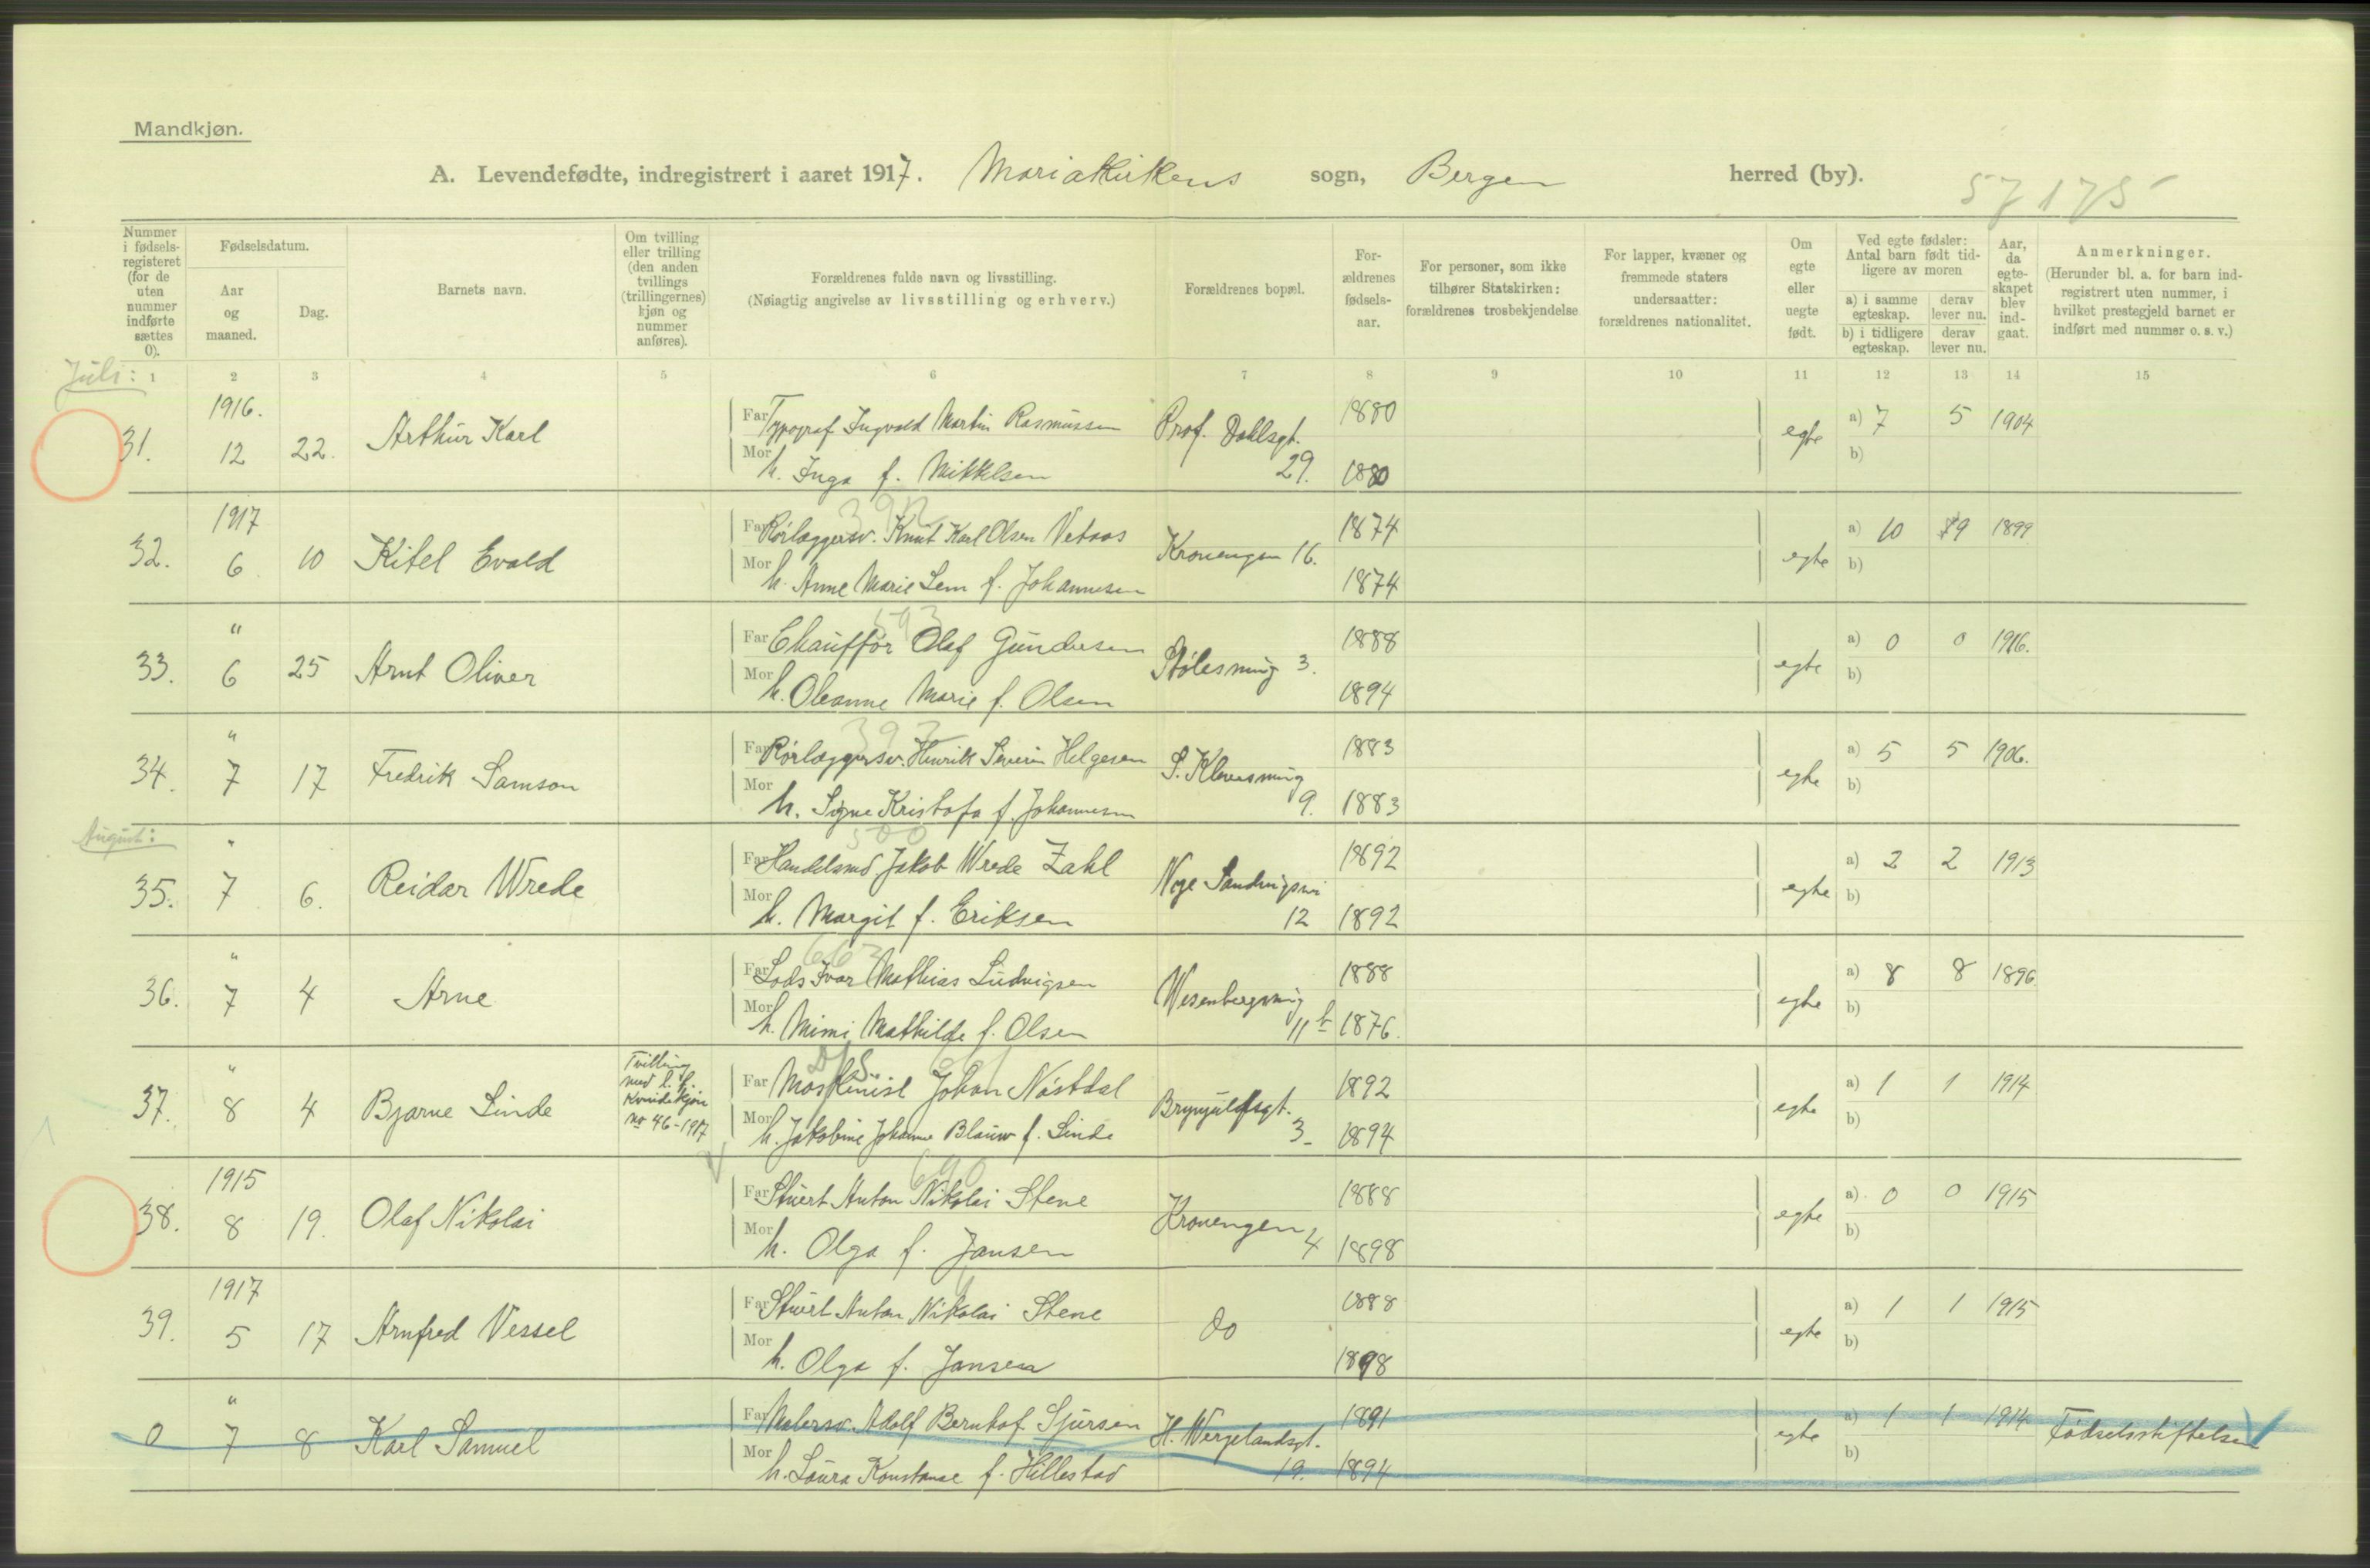 Mandkjøn.
A. Levendefødte, indregistrert i aaret 1917. Mariakirkens sogn, Bergen herred (by).
57175
Nummer i fødselsregisteret (for de uten nummer indførte sættes 0).
Fødselsdatum.
Aar og maaned.
Dag.
Barnets navn.
Om tvilling eller trilling (den anden tvillings (trillingernes) kjøn og nummer anføres).
Forældrenes fulde navn og livsstilling.
(Nøiagtig angivelse av livsstilling og erhverv.)
Forældrenes bopæl.
Forældrenes fødselsaar.
For personer, som ikke tilhører Statskirken: forældrenes trosbekjendelse
For lapper, kvæner og fremmede staters undersaatter: forældrenes nationalitet.
Om egte eller uegte født.
Ved egte fødsler: Antal barn født tidligere av moren
a) i samme egteskap. derav lever nu.
b) i tidligere egteskap. derav lever nu.
Aar, da egteskapet blev indgaat.
Anmerkninger.
(Herunder bl. a. for barn indregistrert uten nummer, i hvilket prestegjeld barnet er indført med nummer o. s. v.)
Juli:
1 2 3 4 5 6 7 8 9 10 11 12 13 14 15
1916.
31. 12 22. Arthur Karl
Far Typograf Ingvald Martin Rasmussen Prof. Dahlsgt. 29. 1880 egte a) 7 5 1904
Mor h. Inga f. Mikkelsen 1880 b)
1917 392
32. 6 10 Kitel Evald
Far Rörlæggersv. Knut Karl Olsen Vetaas Kronengen 16. 1874 egte a) 10 9 1899
Mor h. Anne Marie Lem f. Johannesen 1874 b)
" 593
33. 6 25 Arnt Oliver
Far Chaufför Olaf Gundersen Stølesmug 3. 1888 egte a) 0 0 1916.
Mor h. Oleanne Marie f. Olsen 1894 b)
" 392
34. 7 17 Fredrik Samson
Far Rörlæggersv. Henrik Severin Helgesen S. Kleversmug 9. 1883 egte a) 5 5 1906.
Mor h. Signe Kristofa f. Johannesen 1883 b)
August:
" 500
35. 7 6. Reidar Wrede
Far Handelsmd Jakob Wrede Zahl Nye Sandvigsvei 12 1892 egte a) 2 2 1913
Mor h. Margit f. Eriksen 1892 b)
" 662
36. 7 4 Arne
Far Lods Ivar Mathias Ludvigsen Wesenbergsmug 11 b 1888 egte a) 8 8 1896
Mor h. Mimi Mathilde f. Olsen 1876. b)
"
37. 8 4 Bjarne Linde Tvilling med l. f. Kvindekjøn no 46-1917
Far Maskinist Johan Nástdal Brynjulfsgt. 3 1892 egte a) 1 1 1914
Mor h. Jakobine Johanne Blauw f. Linde 1894 b)
1915 690
38. 8 19. Olaf Nikolai
Far Stuert Anton Nikolai Stene Kronengen 4 1888 egte a) 0 0 1915
Mor h. Olga f. Jansen 1898 b)
1917
39. 5 17 Arnfred Vessel
Far Stuert Anton Nikolai Stene do 1888 egte a) 1 1 1915
Mor h. Olga f. Jansen 1898 b)
"
0 7 8 Karl Samuel
Far Malersv. Adolf Bernhof Sjursen H. Wergelandsgt. 19. 1891 egte a) 1 1 1914 Fødselsstiftelsen
Mor h. Laura Konstanse f. Hillestad 1894 b)